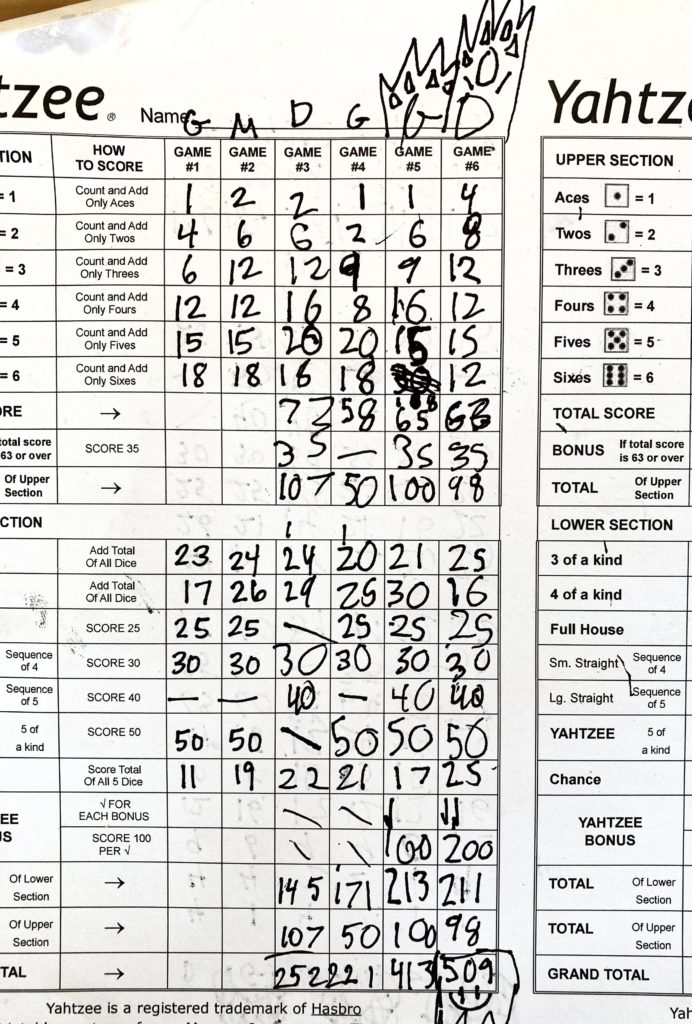 tzee® Name G M D G G D Yahtze
TION HOW TO SCORE GAME #1 GAME #2 GAME #3 GAME #4 GAME #5 GAME #6 UPPER SECTION
= 1 Count and Add Only Aces 1 2 2 1 1 4 Aces = 1
= 2 Count and Add Only Twos 4 6 6 2 6 8 Twos = 2
= 3 Count and Add Only Threes 6 12 12 9 9 12 Threes = 3
= 4 Count and Add Only Fours 12 12 16 8 16 12 Fours = 4
= 5 Count and Add Only Fives 15 15 20 20 15 15 Fives = 5
= 6 Count and Add Only Sixes 18 18 18 18 12 Sixes = 6
RE → 58 65 63 TOTAL SCORE
total score 63 or over SCORE 35 35 — 35 35 BONUS If total score is 63 or over
Of Upper Section → 107 50 100 98 TOTAL Of Upper Section
CTION LOWER SECTION
Add Total Of All Dice 23 24 24 20 21 25 3 of a kind
Add Total Of All Dice 17 26 29 26 30 16 4 of a kind
SCORE 25 25 25 25 25 25 Full House
Sequence of 4 SCORE 30 30 30 30 30 30 30 Sm. Straight Sequence of 4
Sequence of 5 SCORE 40 — — 40 — 40 40 Lg. Straight Sequence of 5
5 of a kind SCORE 50 50 50 50 50 50 YAHTZEE 5 of a kind
Score Total Of All 5 Dice 11 19 22 21 17 25 Chance
EE US √ FOR EACH BONUS YAHTZEE BONUS
SCORE 100 PER √ 100 200
Of Lower Section → 145 171 213 211 TOTAL Of Lower Section
Of Upper Section → 107 50 100 98 TOTAL Of Upper Section
TAL → 252 221 413 509 GRAND TOTAL
Yahtzee is a registered trademark of Hasbro Yah